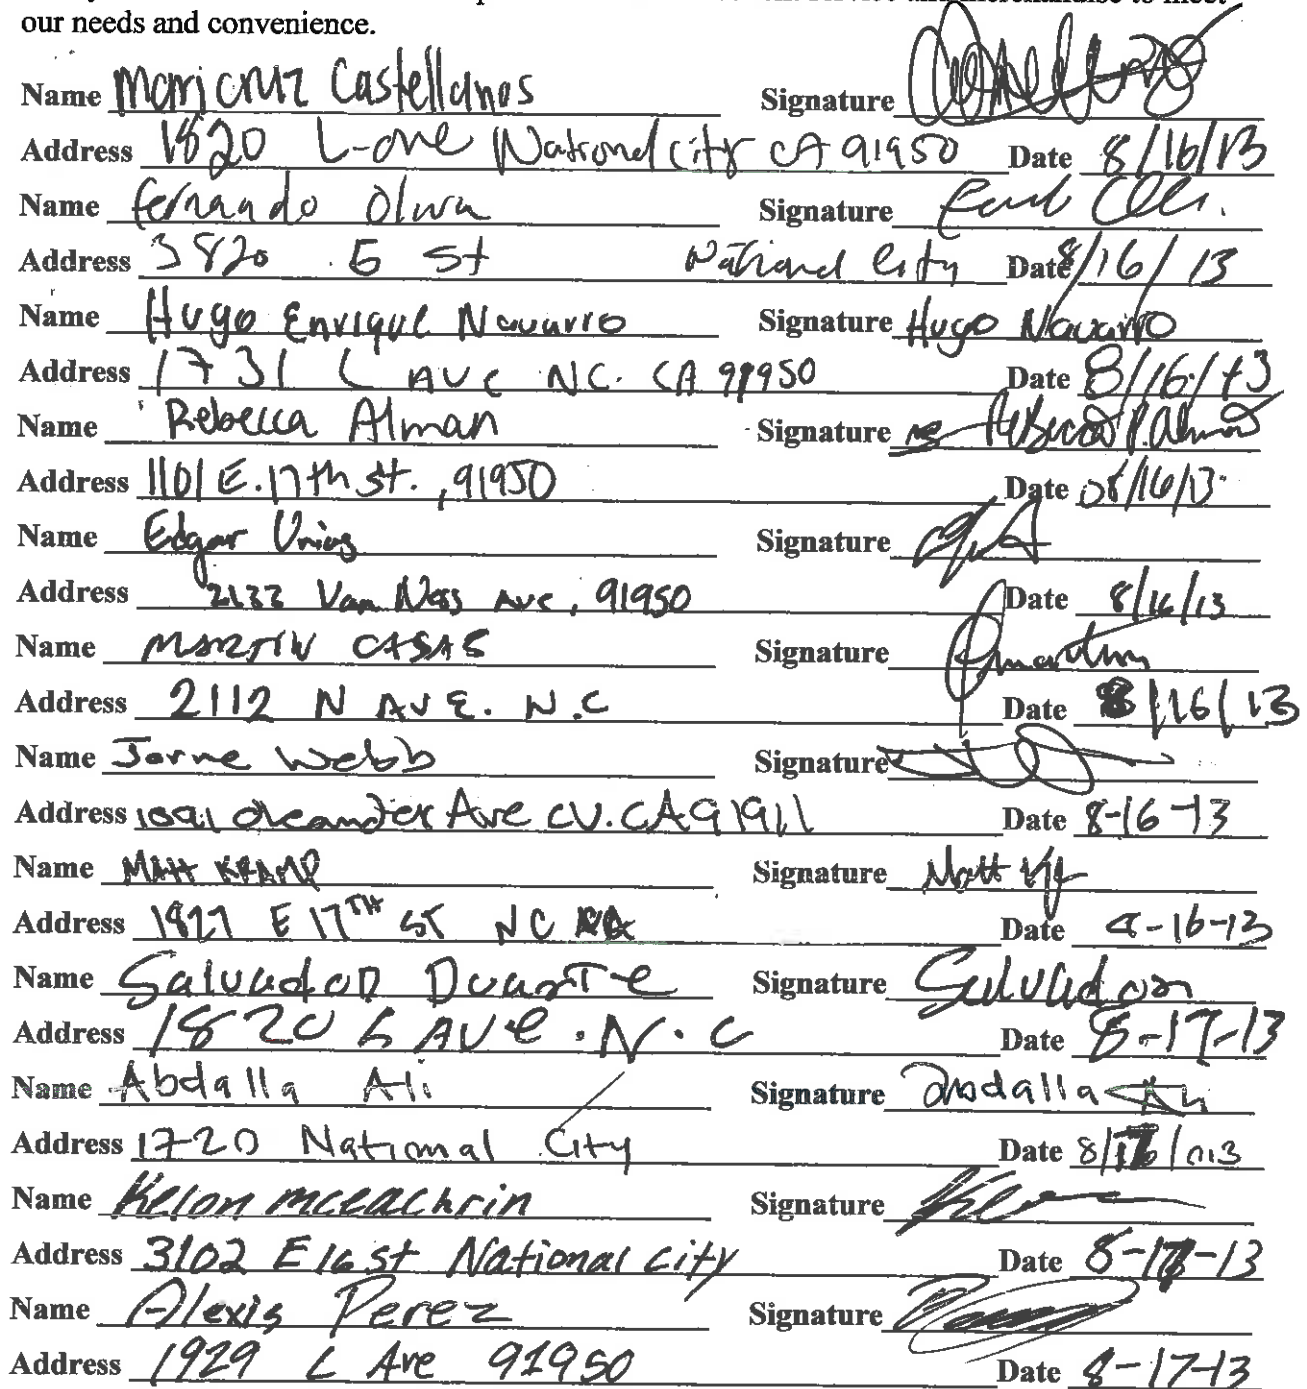 service and merchandise to meet
our needs and convenience.
Name Maricruz Castellanos Signature
Address 1820 L-ave National City CA 91950 Date 8/16/13
Name Fernando Oliva Signature
Address 3820 E St National City Date 8/16/13
Name Hugo Enrique Navarro Signature Hugo Navarro
Address 1731 L AVE N.C. CA 91950 Date 8/16/13
Name Rebecca Alman Signature Rebecca P. Alman
Address 1101 E. 17th st., 91950 Date 08/16/13
Name Edgar Signature
Address 2132 Van Ness Ave, 91950 Date 8/16/13
Name MARTIN CASAS Signature Martin
Address 2112 N AVE. N.C Date 8/16/13
Name Webb Signature
Address 1091 Oleander Ave CV. CA 91911 Date 8-16-13
Name MATT KRAMP Signature Matt
Address 1827 E 17TH ST NC Date 8-16-13
Name Salvador Duarte Signature Salvador
Address 1820 L AVE. N.C Date 8-17-13
Name Abdalla Ali Signature Abdalla Ali
Address 1720 National City Date 8/
Name Kelon mceachrin Signature
Address 3102 E 16 st National City Date 8-17-13
Name Alexis Perez Signature
Address 1929 L Ave 91950 Date 8-17-13